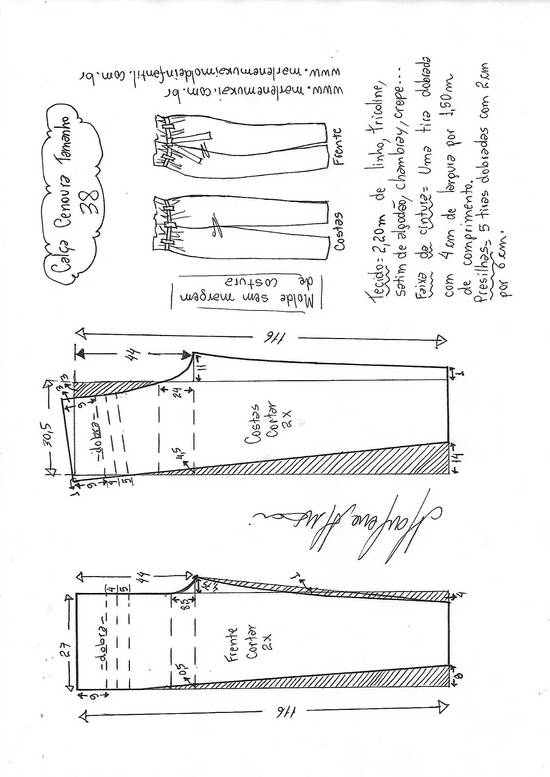 Caça Cenoura Tamanho
38
www.marlenemukai.com.br
www.marlenemukaimoldeinfantil.com.br
Frente
Costas
Molde sem margem
de costura
Tecido= 2,20m de linho, tricoline,
satim de algodão, chambray, crepe...
Faixa de cintura= Uma tira dobrada
com 4cm de largura por 1,50m
de comprimento.
Presilhas= 5 tiras dobradas com 2cm
por 6cm.
116
44
30,5
3
3
6
-dobra-
6
5
1
24
11
4,5
Costas
Cortar
2x
1
14
Marlene Mukai
44
27
6
-dobra-
4
5
8,5
0,5
Frente
Cortar
2x
1
4
8
116